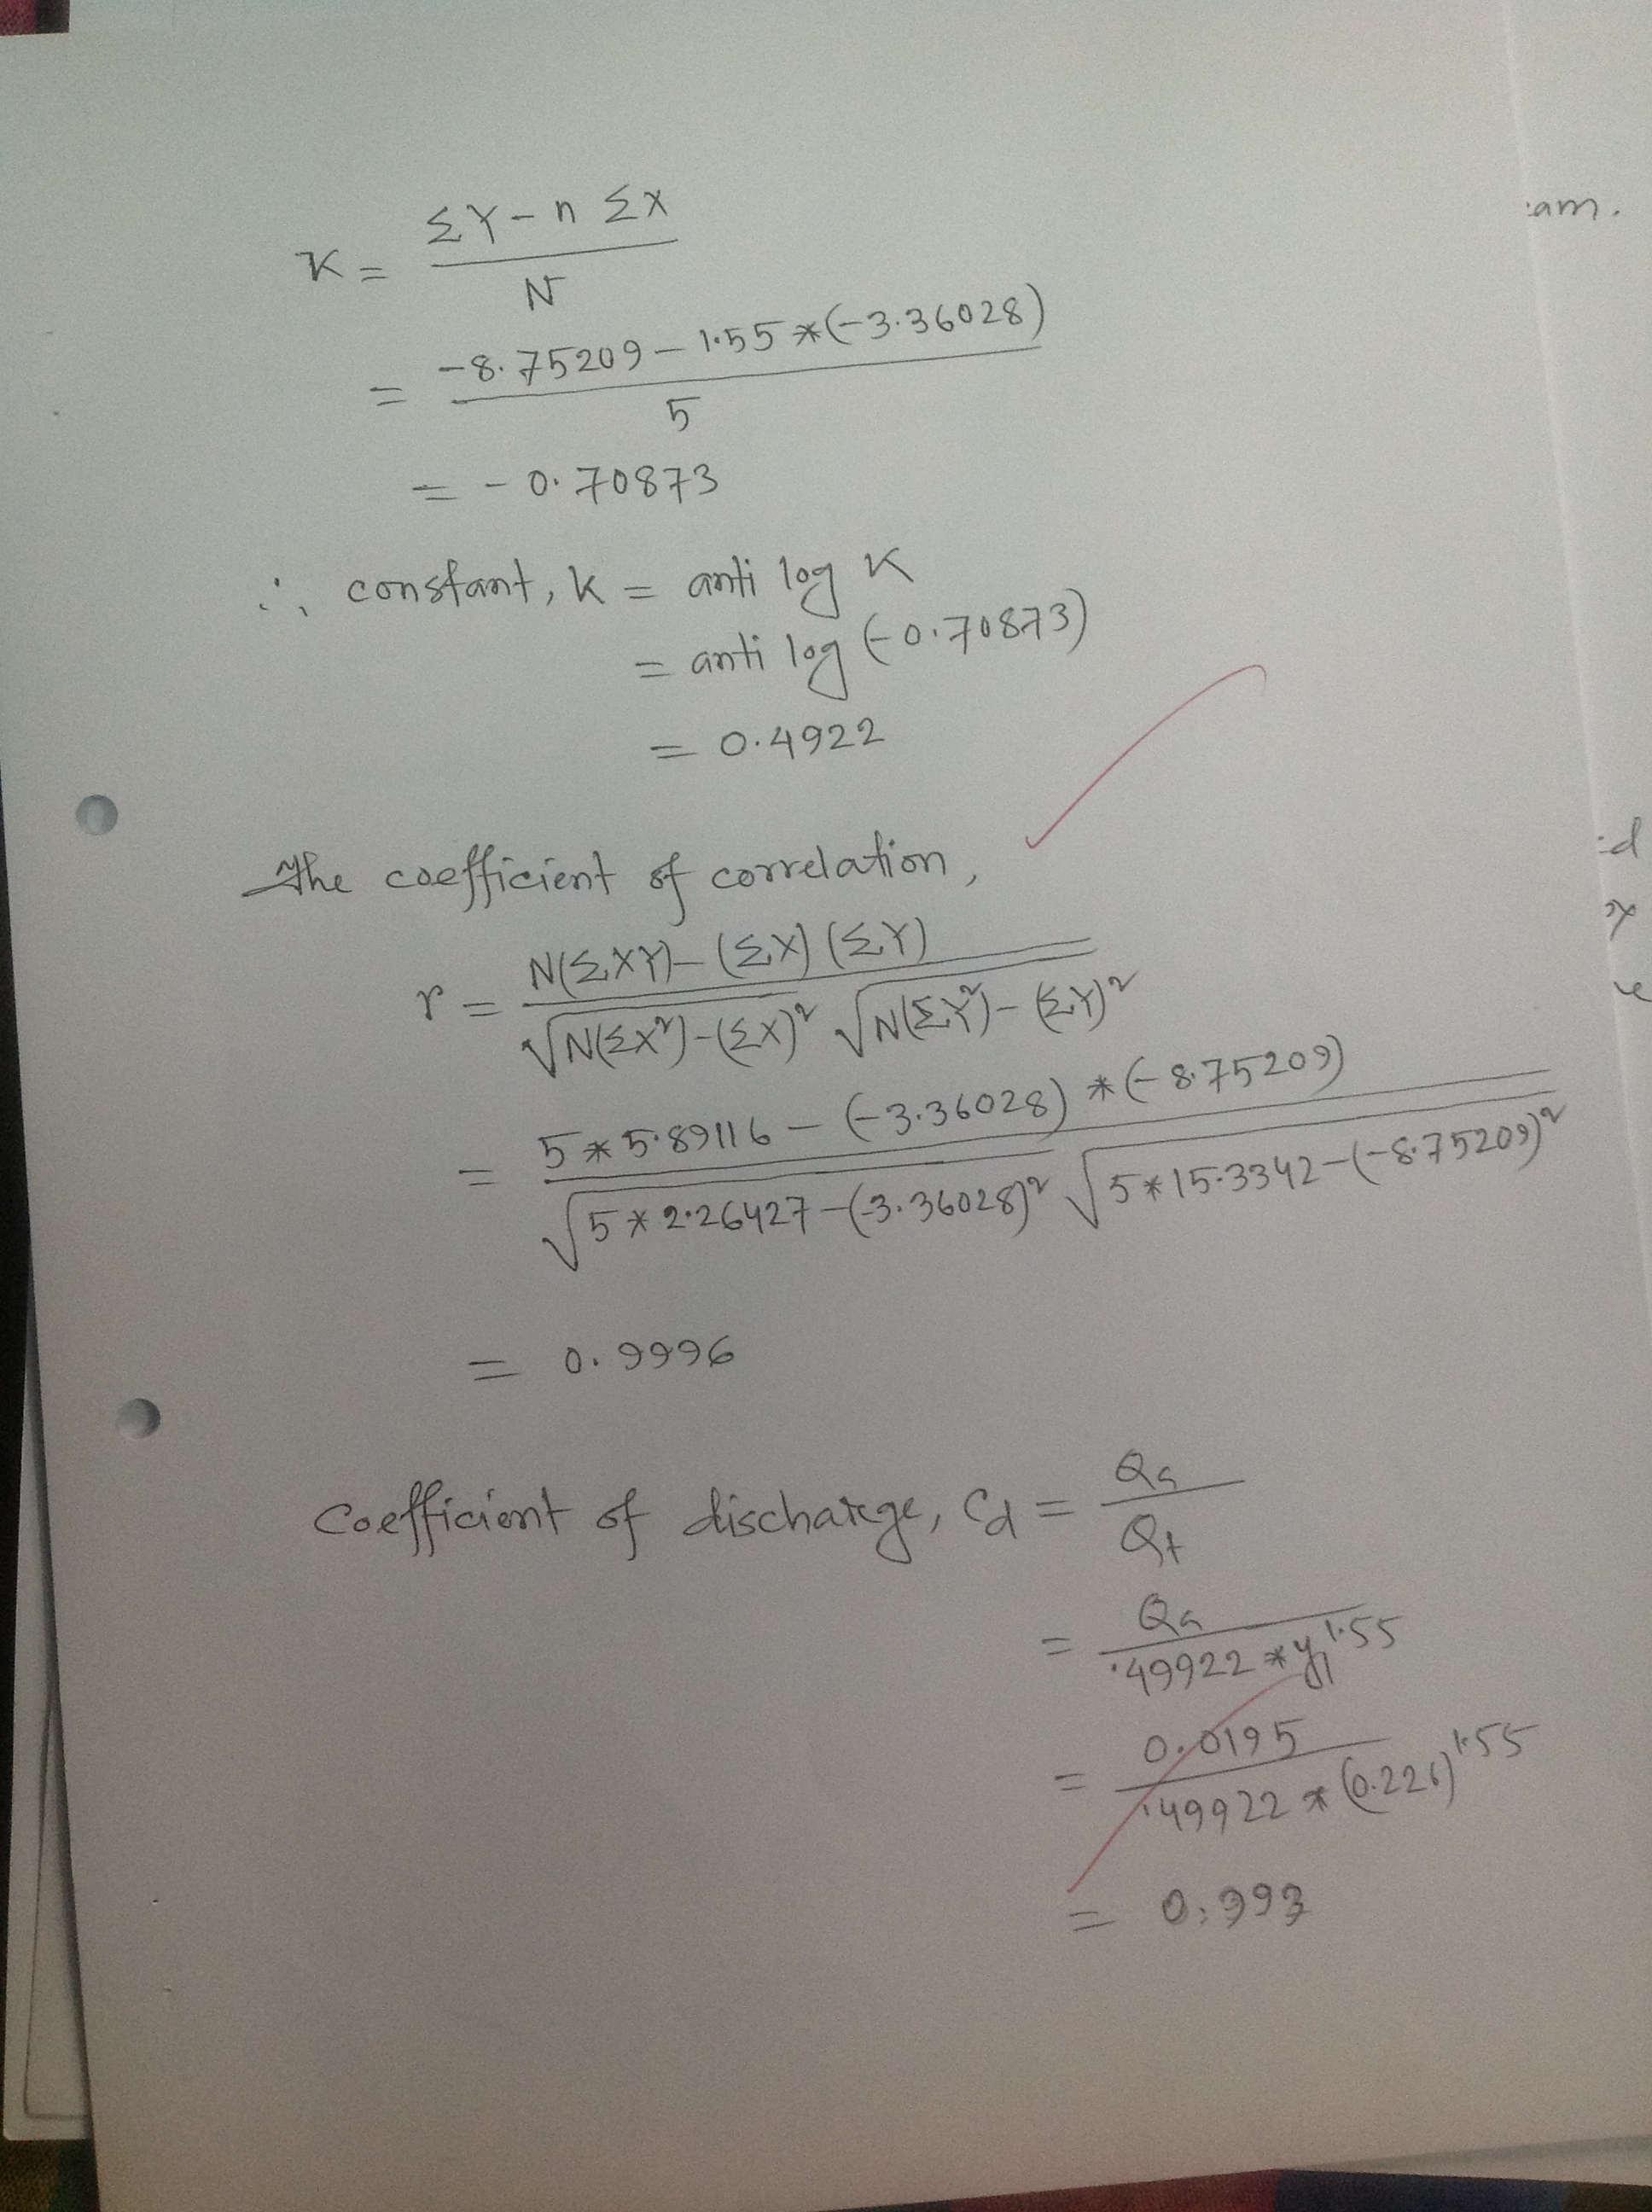 K = (ΣY - n ΣX) / N
= (-8.75209 - 1.55 * (-3.36028)) / 5
= - 0.70873
∴ constant, k = anti log K
= anti log (-0.70873)
= 0.4922
The coefficient of correlation,
r = (N(ΣXY) - (ΣX) (ΣY)) / (√(N(ΣX²) - (ΣX)²) √(N(ΣY²) - (ΣY)²))
= (5 * 5.89116 - (-3.36028) * (-8.75209)) / (√(5 * 2.26427 - (-3.36028)²) √(5 * 15.3342 - (-8.75209)²))
= 0.9996
Coefficient of discharge, Cd = Qa / Qt
= Qa / (.49922 * y₁^1.55)
= 0.0195 / (.49922 * (0.226)^1.55)
= 0.393
am.